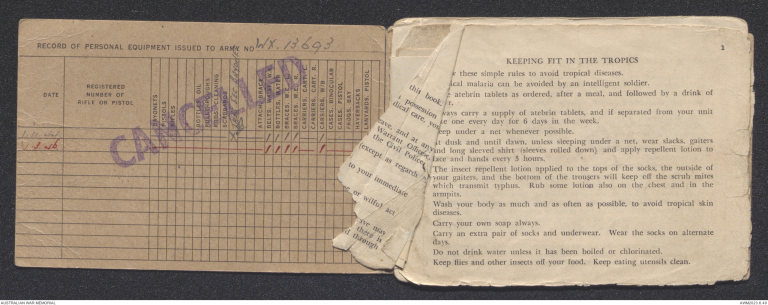 RECORD OF PERSONAL EQUIPMENT ISSUED TO ARMY NO WX. 13693
DATE
REGISTERED
NUMBER OF
RIFLE OR PISTOL
BAYONETS
PISTOLS
BOTTLES, OIL
PULLTHROUGHS
RODS, CLEANING
BOTTLES, WATER
CARRIERS, CART. R.
CASES, BINOCULAR
CASES, PISTOL
HAVERSACKS
LANYARDS, PISTOL
CANCELLED
this book.
possession
dical care, you
eave, and at any
Warrant Officer,
the Civil Police
(except as regards
to your immediate
or wilful act
ive may
there is
d through
1
KEEPING FIT IN THE TROPICS
these simple rules to avoid tropical diseases.
ical malaria can be avoided by an intelligent soldier.
atebrin tablets as ordered, after a meal, and followed by a drink of
ways carry a supply of atebrin tablets, and if separated from your unit
one every day for 6 days in the week.
eep under a net whenever possible.
t dusk and until dawn, unless sleeping under a net, wear slacks, gaiters
and long sleeved shirt (sleeves rolled down) and apply repellent lotion to
face and hands every 3 hours.
The insect repellent lotion applied to the tops of the socks, the outside of
your gaiters, and the bottom of the trousers will keep off the scrub mites
which transmit typhus. Rub some lotion also on the chest and in the
armpits.
Wash your body as much and as often as possible, to avoid tropical skin
diseases.
Carry your own soap always.
Carry an extra pair of socks and underwear. Wear the socks on alternate
days.
Do not drink water unless it has been boiled or chlorinated.
Keep flies and other insects off your food. Keep eating utensils clean.
AUSTRALIAN WAR MEMORIAL
AWM2023.6.40